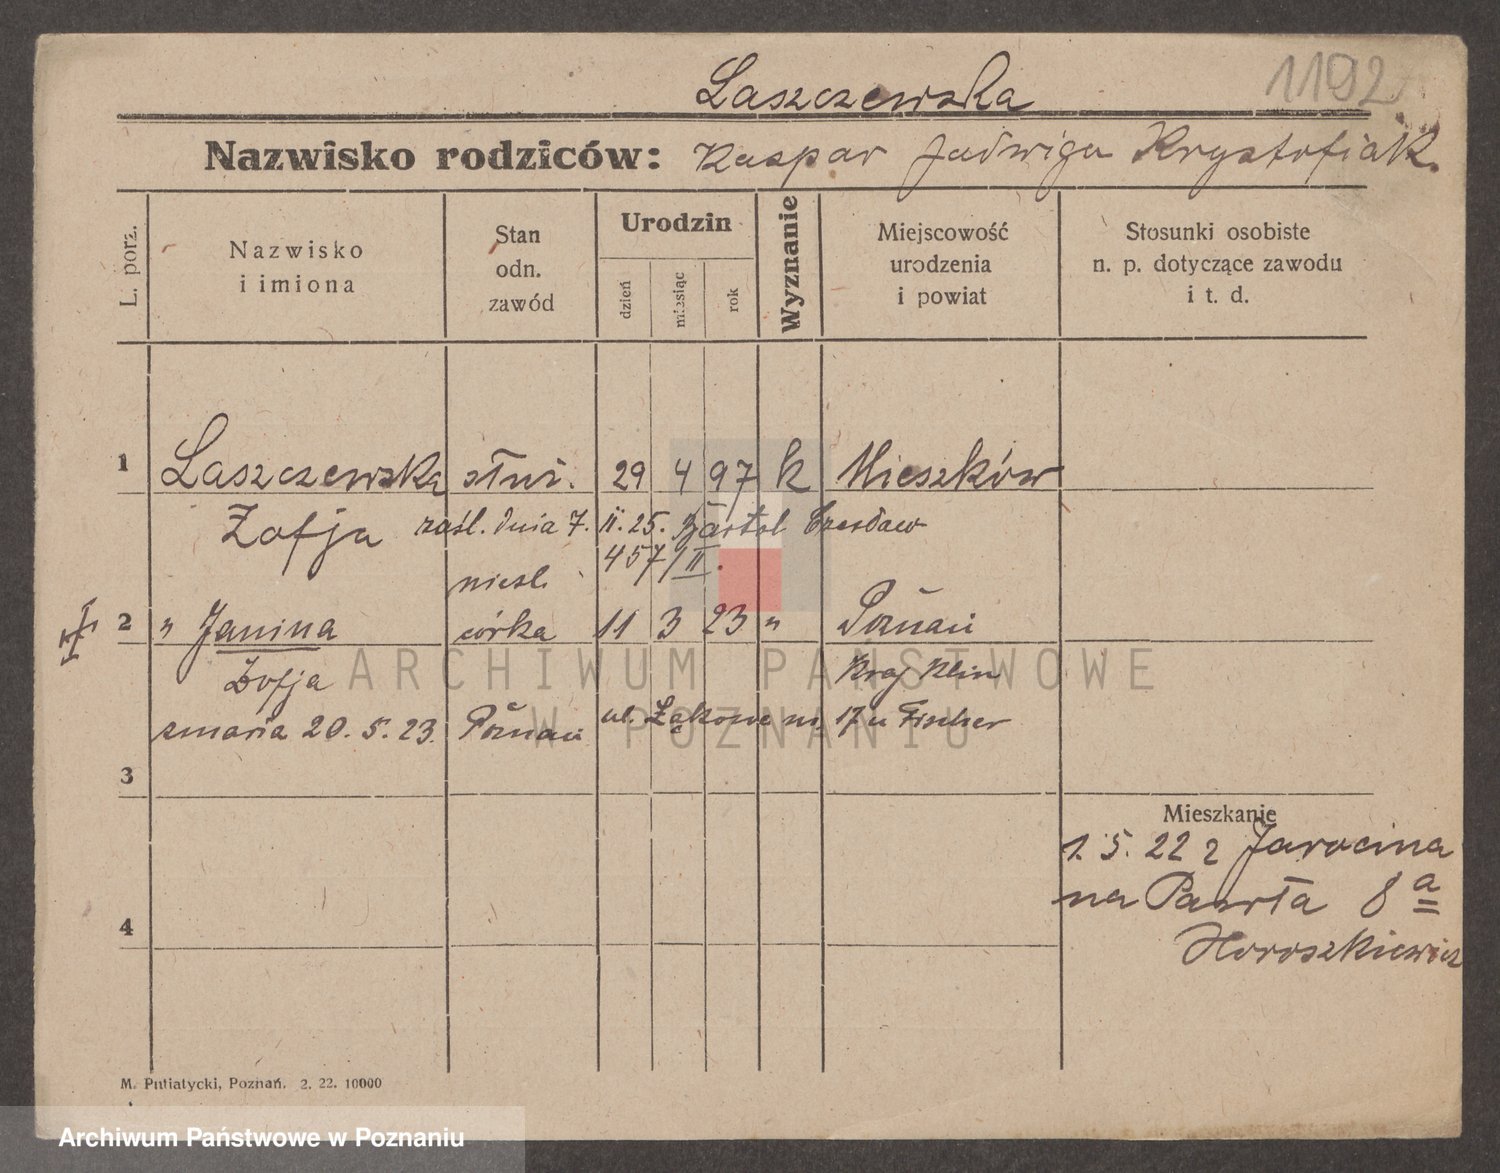 1192
Laszczewska
Nazwisko rodziców: Kaspar Jadwiga Krystofiak.
L. porz.
Nazwisko
i imiona
Stan
odn.
zawód
Urodzin
dzień
miesiąc
rok
Wyznanie
Miejscowość
urodzenia
i powiat
Stosunki osobiste
n. p. dotyczące zawodu
i t. d.
1 Laszczewska służ. 29 4 97 k Mieszków
Zofja zaśl. dnia 7. II. 25. Bartol Czesław
457/II.
niezl.
2 " Janina córka 11 3 23 " Poznań
Zofja
zmarła 20. 5. 23. Poznań ul. Łąkowa nr. 17 u Fischer
3
Mieszkanie
1. 5. 22 z Jarocina
na Pawła 8 a
Horoszkiewicz
4
M. Putiatycki, Poznań. 2. 22. 10000
ARCHIWUM PAŃSTWOWE
W POZNANIU
Archiwum Państwowe w Poznaniu